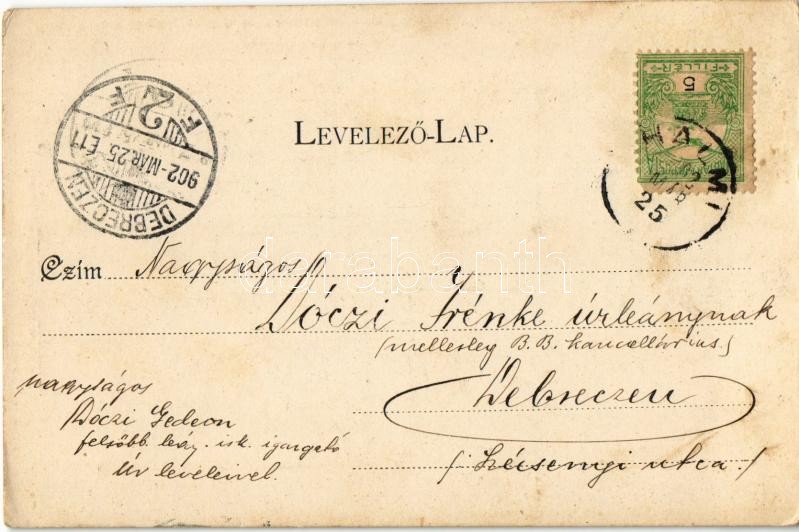 FILLÉR
5
HALMI
25
DEBRECZEN
902-MAR.25. E11
F 2 F
LEVELEZŐ-LAP.
Czím Nagyságos
Dóczi Irénke úrleánynak
(mellesleg B.B. kancellárius.)
Debreczen
(Szécsenyi utca.)
nagyságos
Dóczi Gedeon
felsőbb leány. isk. igazgató
Úr leveleivel.
darabanth